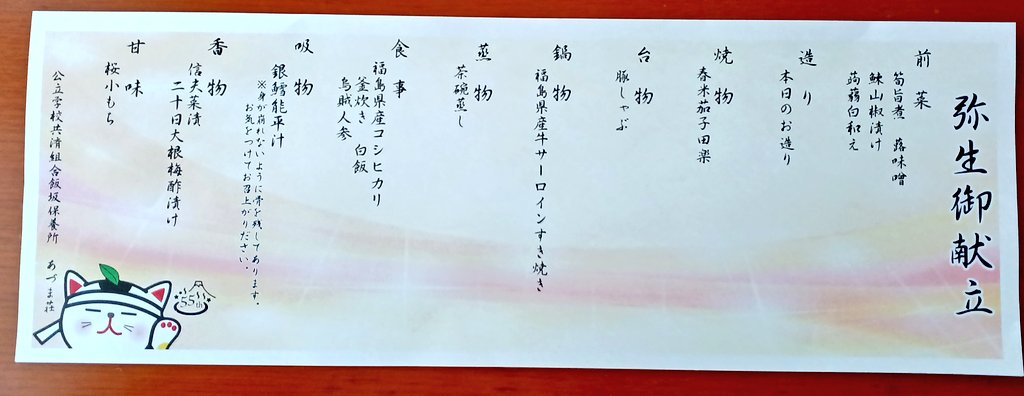 弥生御献立
前菜
筍旨煮　蕗味噌
鰊山椒漬け
蒟蒻白和え
造り
本日のお造り
焼物
春米茄子田楽
台物
豚しゃぶ
鍋物
福島県産牛サーロインすき焼き
蒸物
茶碗蒸し
食事
福島県産コシヒカリ
釜炊き　白飯
烏賊人参
吸物
銀鱈能平汁
※身が崩れないように骨を残してあります。
お気をつけてお召上がりください。
香物
信夫菜漬
二十日大根梅酢漬け
甘味
桜小もち
公立学校共済組合飯坂保養所　あづま荘
55th